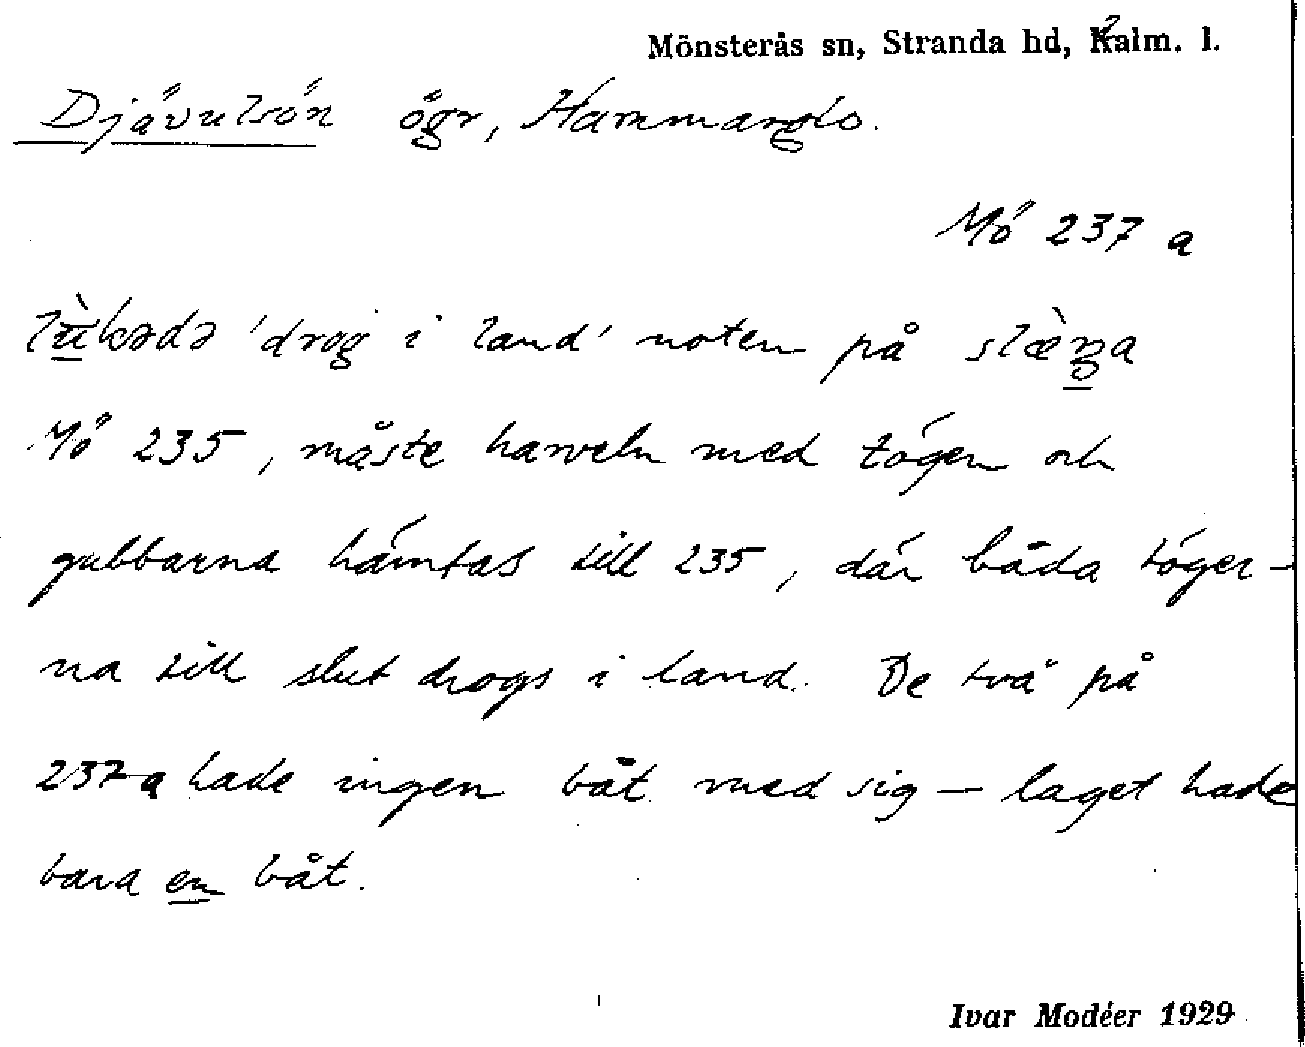 Mönsterås sn, Stranda hd, Kalm. l.
2
Djävulsön ögr, Hammarglo.
Mö 237 a
lù̱kədə 'drog i land' noten på slæ̀ŋa
Mö 235, måste harveln med tögen och
gubbarna hämtas till 235, där båda töger-
na till slut drogs i land. De två på
237a hade ingen båt med sig – laget hade
bara en båt.
Ivar Modéer 1929